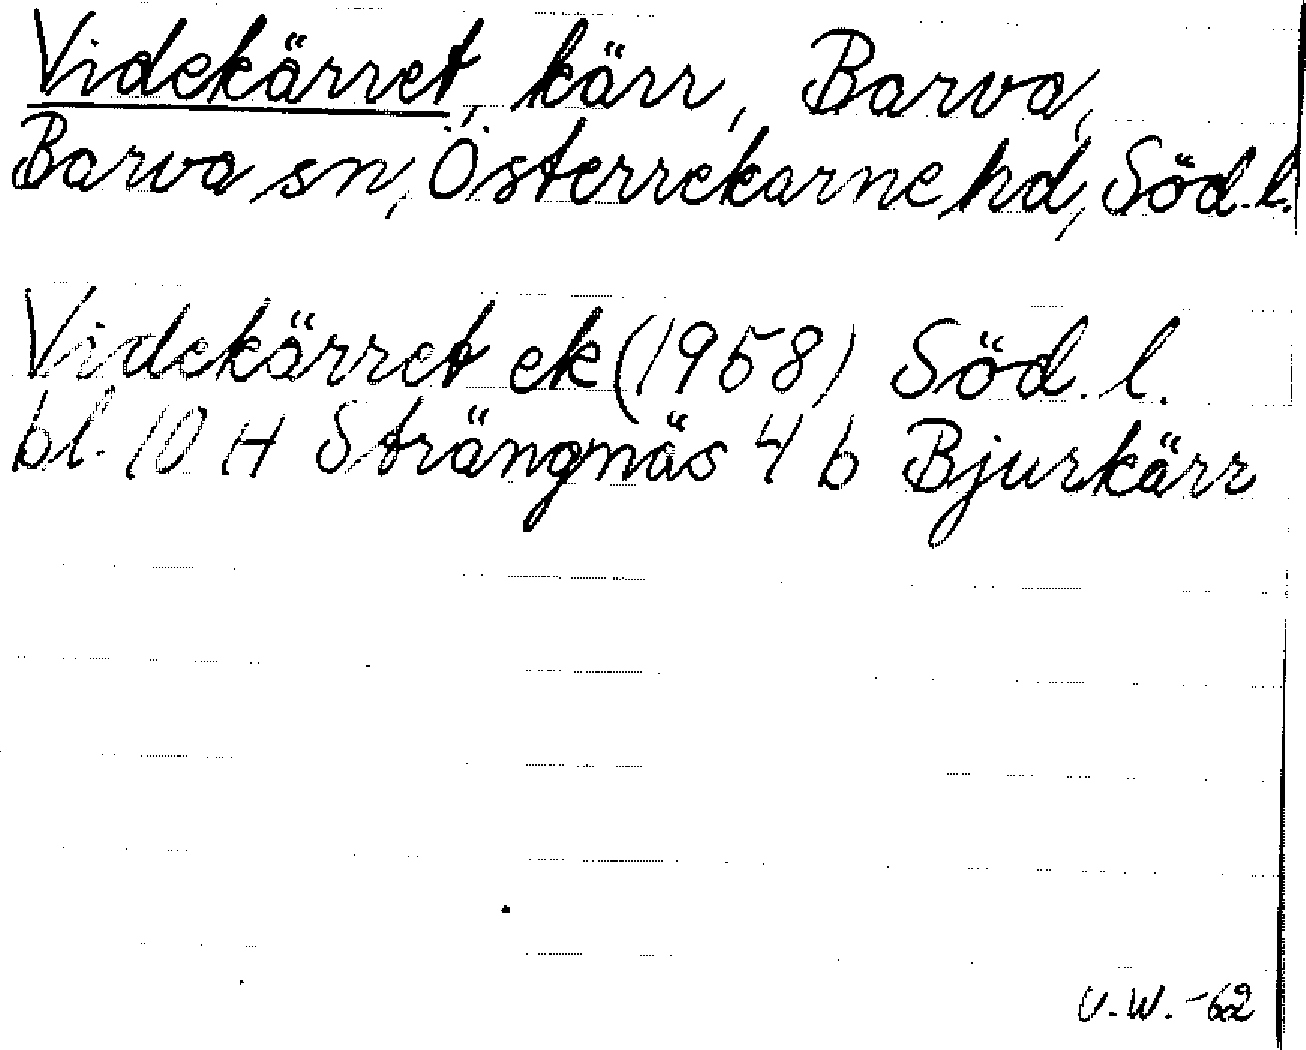 Videkärret, kärr, Barva,
Barva sn, Österrekarne hd, Söd. l.
Videkärret ek (1958) Söd. l.
bl. 10 H Strängnäs 4 b Bjurkärr
U.W. -62